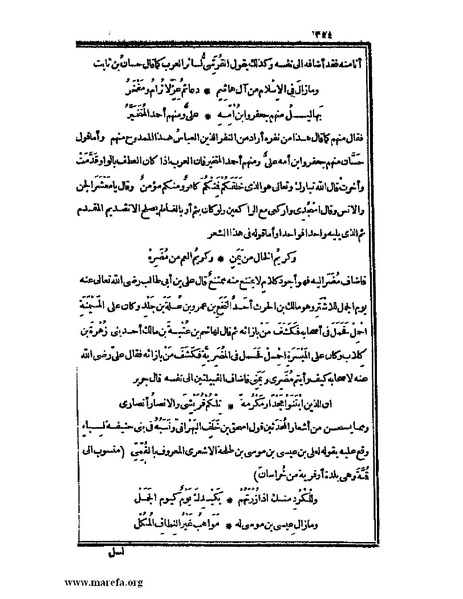 ١٣٤٤
أنا منه فقد أضافه الى نفسه وكذلك يقول القُرَشِى لسائر العرب كما قال حسان بن ثابت
ومازال فى الإسلام من آل هاشم * دعائم عِزٍّ لا تُرام ومَفْخَرُ
بَهاليلُ منهم جعفرٌ وابنُ أمِّه * علىٌّ ومنهم أحمدُ المُتَخَيَّرُ
فقال منهم كما قال هذا من نفره أراد من النفر الذين العباسُ هذا الممدوح منهم وأما قول
حسَّان منهم جعفر وابن أمه علىٌّ ومنهم أحمد المتخير فان العرب اذا كان العطف بالواو قدَّمتْ
وأخرتْ قال الله تبارك وتعالى هو الذى خَلَقَكُم فمِنْكُم كافرٌ ومنكم مؤمنٌ وقال يا مَعْشَرَ الجن
والانس وقال اسْجُدى واركعى مع الراكعين ولو كان بثم أو بالفاء لم يصلح الا تقديم المقدم
ثم الذى يليه واحدا فواحدا وأما قوله فى هذا الشعر
وكريمُ الخال من يَمَنٍ * وكريمُ العم من مُضَرِهْ
فأضاف مُضَر اليه فهو أجود كلام لا يمتنع منه ممتنعٌ قال على بن أبى طالب رضى الله تعالى عنه
يوم الجمل للأشتر وهو مالك بن الحرث أحد النَّخَع بن عمرو بن عُلَة بن جَلْد وكان على المَيْمَنة
احمِلْ فحَمَل فى أصحابه فكَشَف من بازائه ثم قال لهاشم بن عُتْبة بن مالك أحد بنى زُهْرة بن
كلاب وكان على المَيْسَرة احمِلْ فحَمَل فى المُضَرِية فكَشَف من بازائه فقال علىّ رضى الله
عنه لاصحابه كيف رأيتم مُضَرِى ويَمَنِى فاضاف القبيلتين الى نفسه قال جرير
ان الذين ابْتَنَوْا مجدا ومَكْرُمة * تِلكُم قُرَيْشِى والأنصارُ أنصارى
ومما يستحسن من أشعار المُحْدَثين قول اسحق بن خَلَف البَهْرانى ونَسَبُه فى بنى حنيفة لسِباء
وقع عليه بقوله لعلى بن عيسى بن موسى بن طلحة الاشعرى المعروف بالقُمِّى (منسوب الى
قُمَّ وهى بلدة أو قرية من خُراسان)
وللكُرد منك اذا زُرْتَهُمْ * بكَيْدِك يومٌ كيوم الجَمَلْ
ومازال عيسى بن موسى له * مَواهبُ غَيْرُ النِطاف المُكُلْ
نسل
www.marefa.org